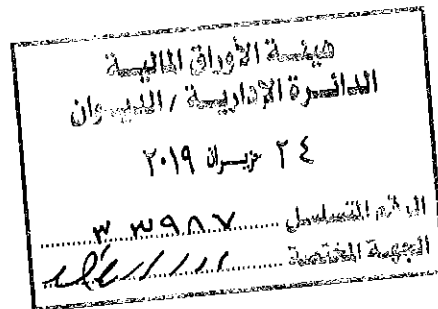 هيئة الأوراق المالية
الدائرة الإدارية / الديوان
٢٤ حزيران ٢٠١٩
الرقم المتسلسل ٣٣٩٨٧
الجهة المختصة